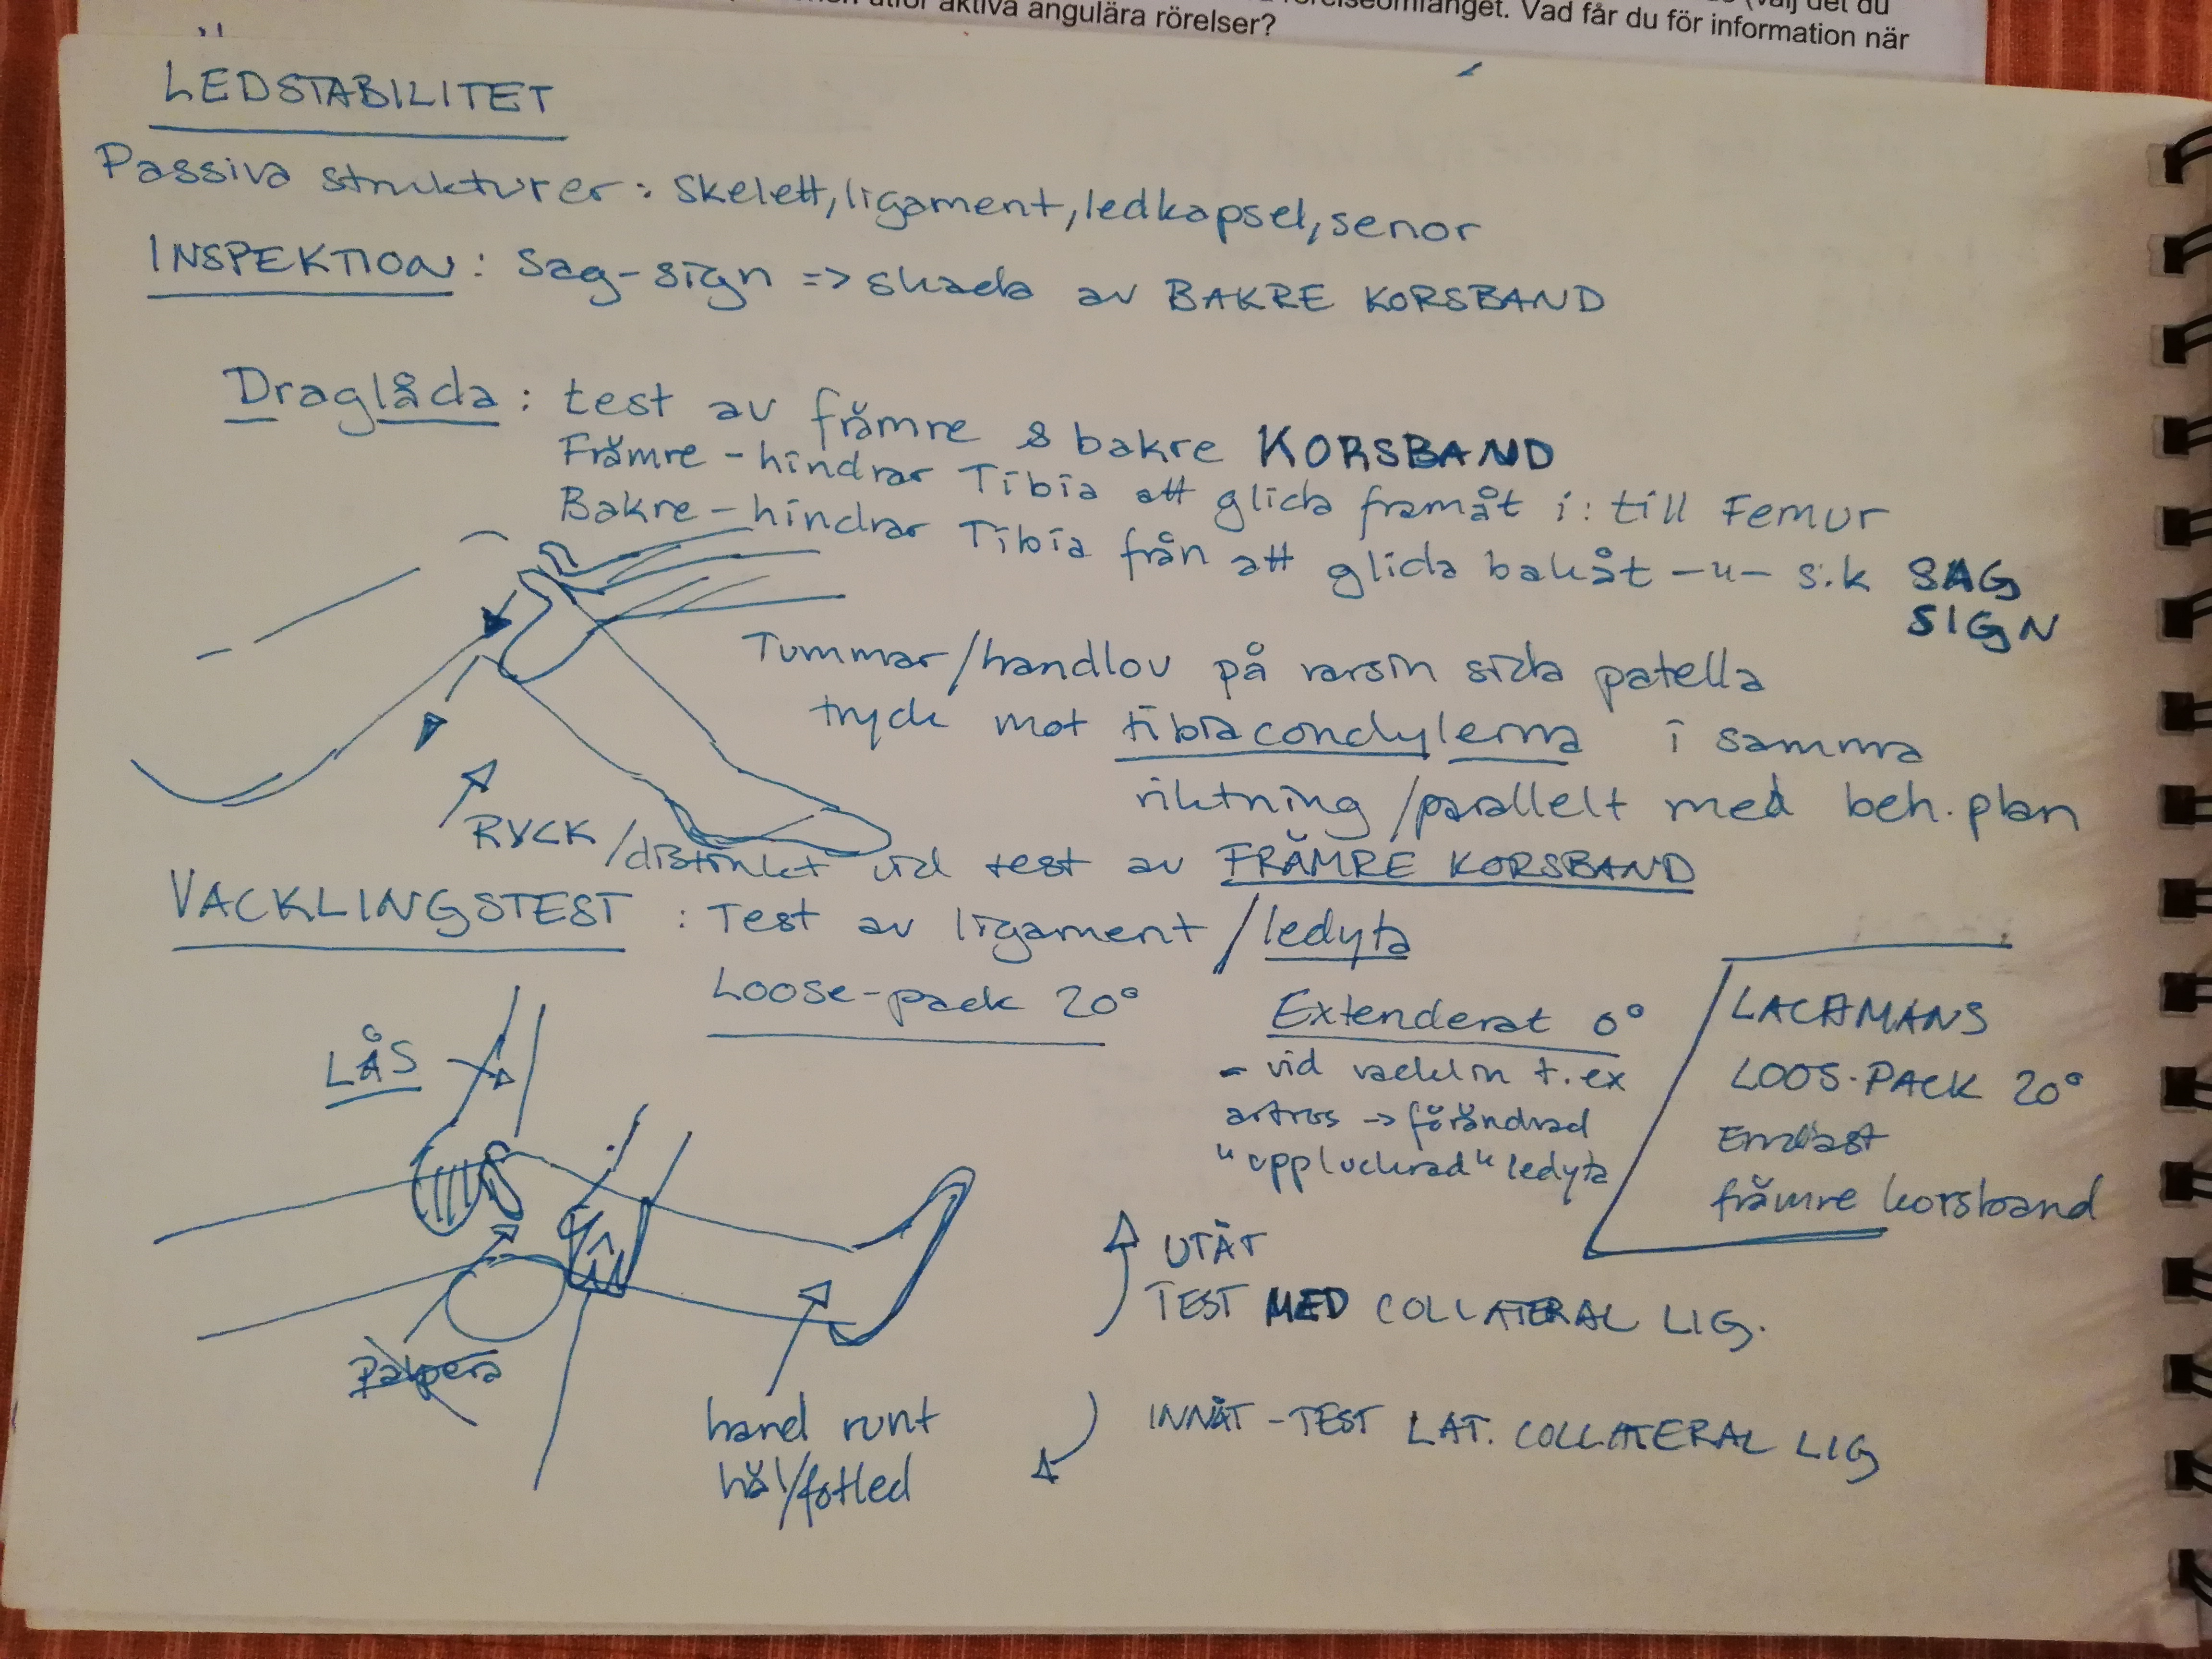 utför aktiva angulära rörelser?
rörelseomfånget. Vad får du för information när
(välj det du
LEDSTABILITET
Passiva strukturer: skelett, ligament, ledkapsel, senor
INSPEKTION: Sag-sign => skada av BAKRE KORSBAND
Draglåda: test av främre & bakre KORSBAND
Främre - hindrar Tibia att glida framåt i: till Femur
Bakre - hindrar Tibia från att glida bakåt -"- s.k SAG
SIGN
Tummar/handlov på varsin sida patella
tryck mot tibiacondylerna i samma
riktning/parallellt med beh. plan
RYCK/distinkt vid test av FRÄMRE KORSBAND
VACKLINGSTEST: Test av ligament/ledyta
Loose-pack 20°
Extenderat 0°
- vid vacklin t.ex
artros -> förändrad
"uppluckrad" ledyta
LACHMANS
LOOS-PACK 20°
Endast
främre korsband
LÅS
Palpera
hand runt
häl/fotled
UTÅT
TEST MED COLLATERAL LIG.
INNÅT - TEST LAT. COLLATERAL LIG